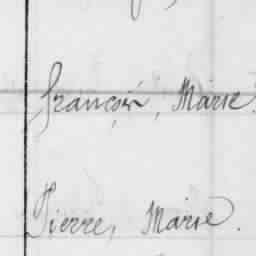 François, Marie.
Pierre, Marie.